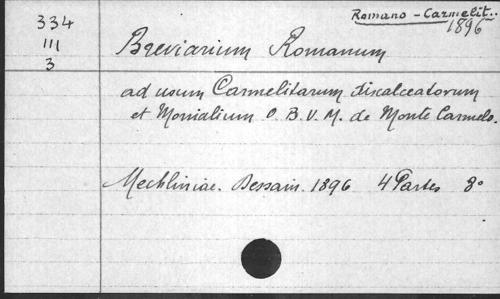 334
III
3
Romano - Carmelit..
1896
Breviarium Romanum
ad usum Carmelitarum discalceatorum
et Monialium O. B. V. M. de Monte Carmelo.
Mechliniae. Dessain. 1896 4 Partes 8°